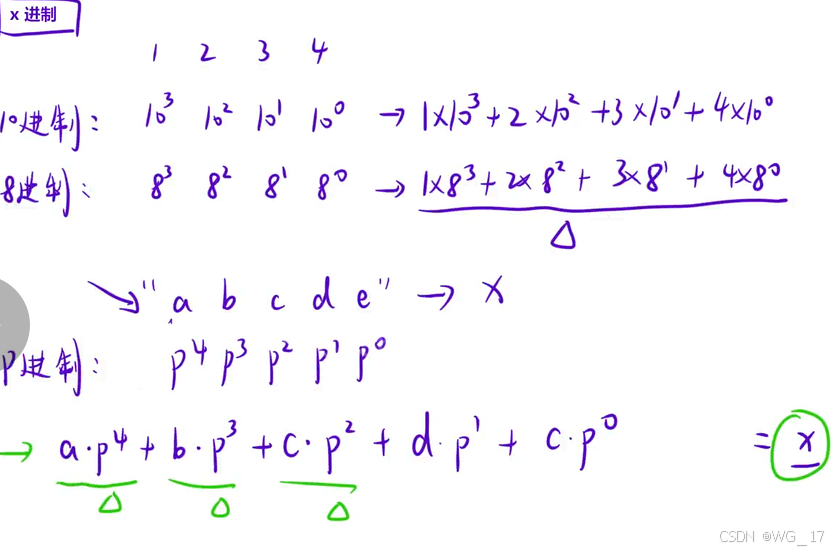 x 进制
1 2 3 4
10进制: 10³ 10² 10¹ 10⁰ → 1×10³+2×10²+3×10¹+4×10⁰
8进制: 8³ 8² 8¹ 8⁰ → 1×8³+2×8²+3×8¹+4×8⁰
△
↘"a b c d e" → x
P进制: p⁴ p³ p² p¹ p⁰
→ a·p⁴+b·p³+c·p²+d·p¹+c·p⁰ = x
△ △ △
CSDN @WG_17